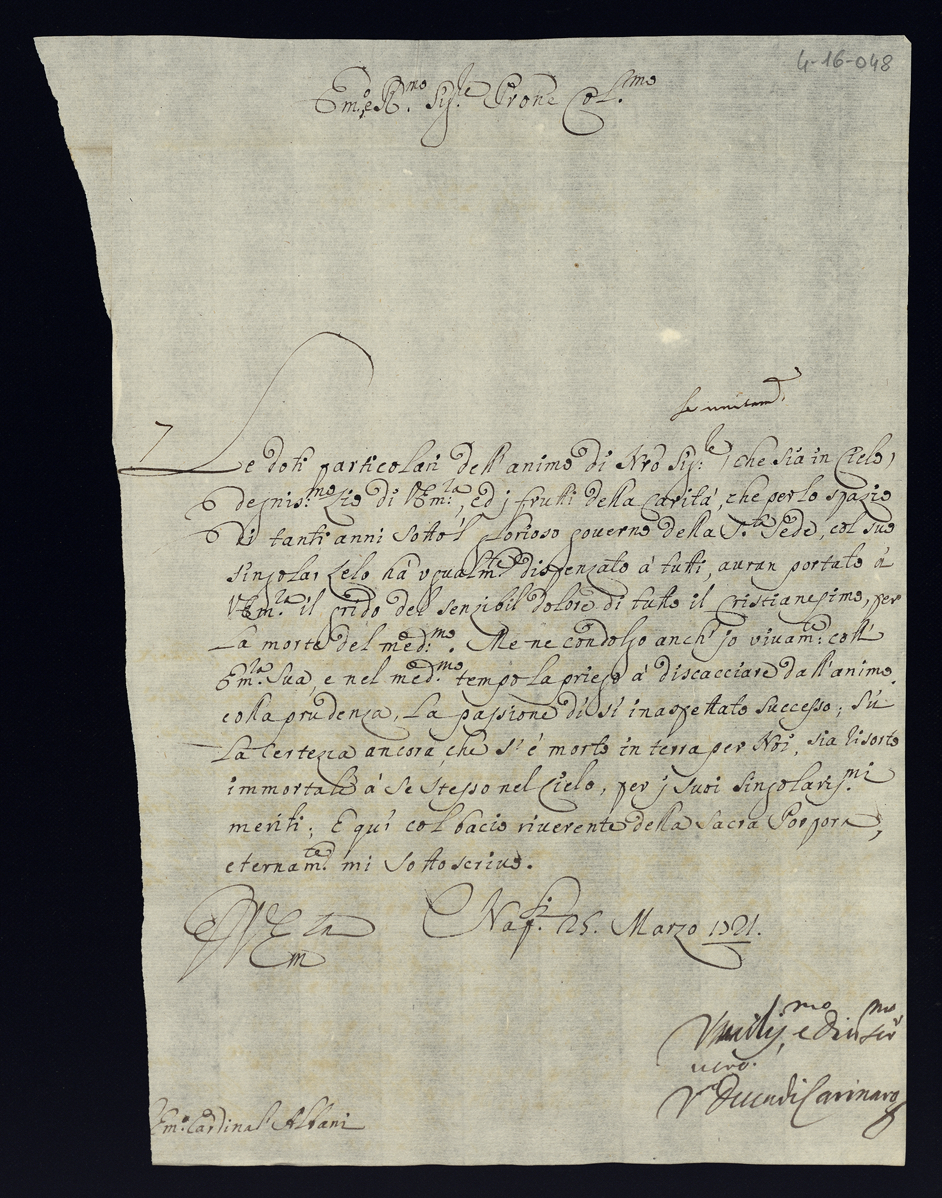 4-16-048
Em.o e R.mo Sig.re Prone Col.mo
Le doti particolari dell'animo di Nrõ Sig.re (che sia in Cielo)
degnis.mo Zio di V Em.la, ed j frutti della Carità, che per lo spazio
di tanti anni sotto 'l glorioso governo della S.ta Sede, col suo
singolar Zelo hà vgualm.te dispenzato à tutti, auran portato à
V Em.la il grido del sensibil dolore di tutto il Cristianesimo, per
la morte del med.mo. Me ne condolgo anch'jo vivam.te coll'
Em.la Sua, e nel med.mo tempo la priego à discacciare dall'animo
colla prudenza, la passione di sì inaspettato successo; Sù
la Certezza ancora, che s'è morto in terra per Noi, sia risorto
immortale à se stesso nel Cielo, per j suoi singolariss.mi
meriti; E quì col bacio riverente della Sacra Porpora,
eternam.te mi sottoscrivo.
Nap.li 25. Marzo 1721.
Vmilis.mo, e diu.mo ser.r
uero.
Duca di Carinaro
Em.o Cardinal' Albani